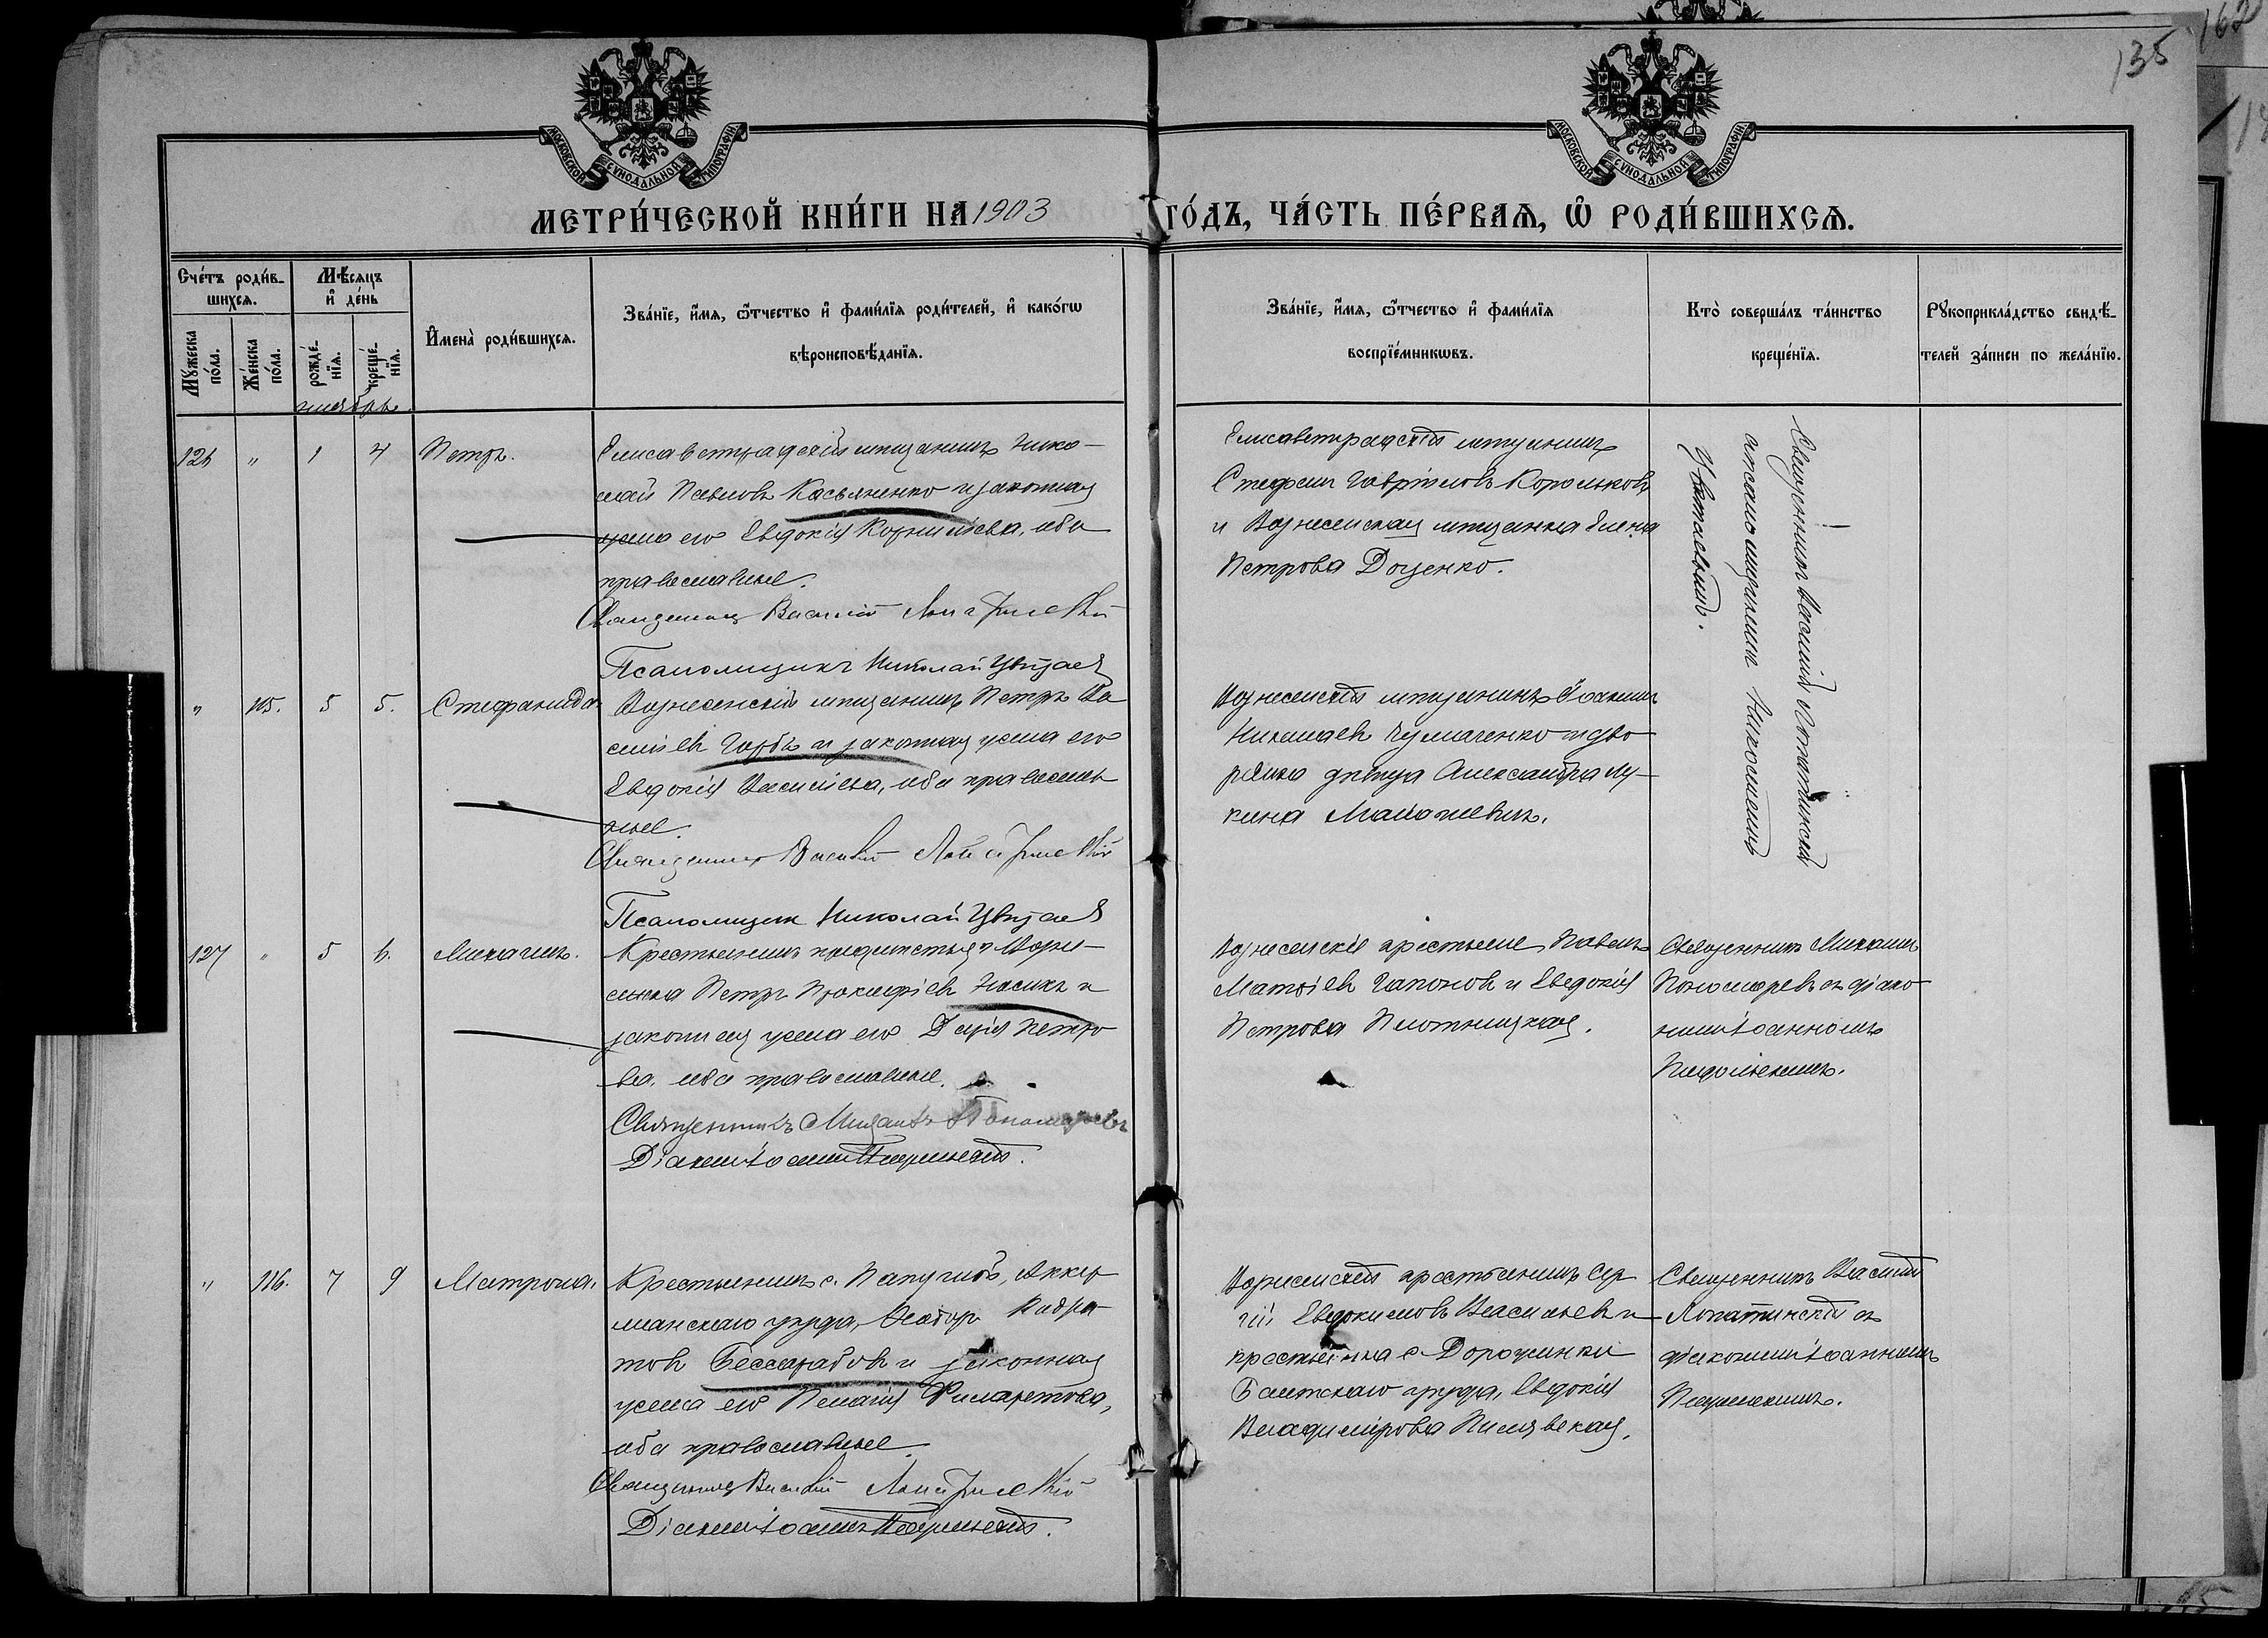 162
135
МОСКОВСКОЙ СѴНОДАЛЬНОЙ ТИПОГРАФІИ
МОСКОВСКОЙ СѴНОДАЛЬНОЙ ТИПОГРАФІИ
МЕТРИ́ЧЕСКОЙ КНИ́ГИ НА 1903 ГО́ДЪ, ЧА́СТЬ ПЕ́РВАѦ, Ѡ҆ РОДИ́ВШИХСѦ.
Сче́тъ роди́в-
шихсѧ.
Мѣ́сѧцъ
и҆ де́нь
Мꙋ́жеска по́ла.
Же́нска по́ла.
рожде́-
нїѧ.
креще́-
нїѧ.
И҆мена̀ роди́вшихсѧ.
Зва́нїе, и҆́мѧ, ѻ҆́тчество и҆ фами́лїѧ роди́телей, и҆ како́гѡ
вѣроисповѣ́данїѧ.
Зва́нїе, и҆́мѧ, ѻ҆́тчество и҆ фами́лїѧ
воспрїе́мникѡвъ.
Кто̀ соверша́лъ та́инство
креще́нїѧ.
Рꙋкоприкла́дство свидѣ́-
телей за́писи по жела́нїю.
ноябрь
126 " 1 4 Петръ.
Елисаветградскій мѣщанинъ Нико-
лай Павловъ Касьяненко и законная
жена его Евдокія Корнилiева, оба
православные.
Священникъ Василій Лопатинскій
Псаломщикъ Николай Цвѣтаевъ
Елисаветградскій мѣщанинъ
Стефанъ Гаврiиловъ Корольковъ
и Вознесенская мѣщанка Елена
Петрова Доценко.
Священникъ Василій Лопатинскій
съ псаломщикомъ Николаемъ
Цвѣтаевымъ.
" 115. 5 5. Стефанида
Вознесенскій мѣщанинъ Петръ Ва
силіевъ Горбъ и законная жена его
Евдокія Василіева, оба православ
ные.
Священникъ Василій Лопатинскій
Псаломщикъ Николай Цвѣтаевъ
Вознесенскій мѣщанинъ Іоакимъ
Николаевъ Чумаченко и дво
рянка дѣвица Александра Лу-
кина
127 " 5 6. Михаилъ.
Крестьянинъ предмѣстья
Петръ Прокофіевъ Носикъ и
законная жена его Дарія Петро
ва, оба православные.
Священникъ Михаилъ Пономаревъ
Діаконъ Іоаннъ
Вознесенскіе крестьяне Павелъ
Матѳіевъ Гапоновъ и Евдокія
Петрова Плотницкая.
Священникъ Михаилъ
Пономаревъ съ діако
номъ Іоанномъ
" 116. 7 9 Матрона.
Крестьянинъ с. Аккер
манскаго уѣзда, Ѳеодоръ Кодра
товъ Бессарабовъ и законная
жена его Пелагія Филаретова,
оба православные.
Священникъ Василій Лопатинскій
Діаконъ Іоаннъ
Вознесенскій крестьянинъ Сер
гій Евдокимовъ Васильевъ и
крестьянка с. Дорожинки
Балтскаго уѣзда, Евдокія
Владимірова Пилявская.
Священникъ Василій
Лопатинскій съ
діакономъ Іоанномъ